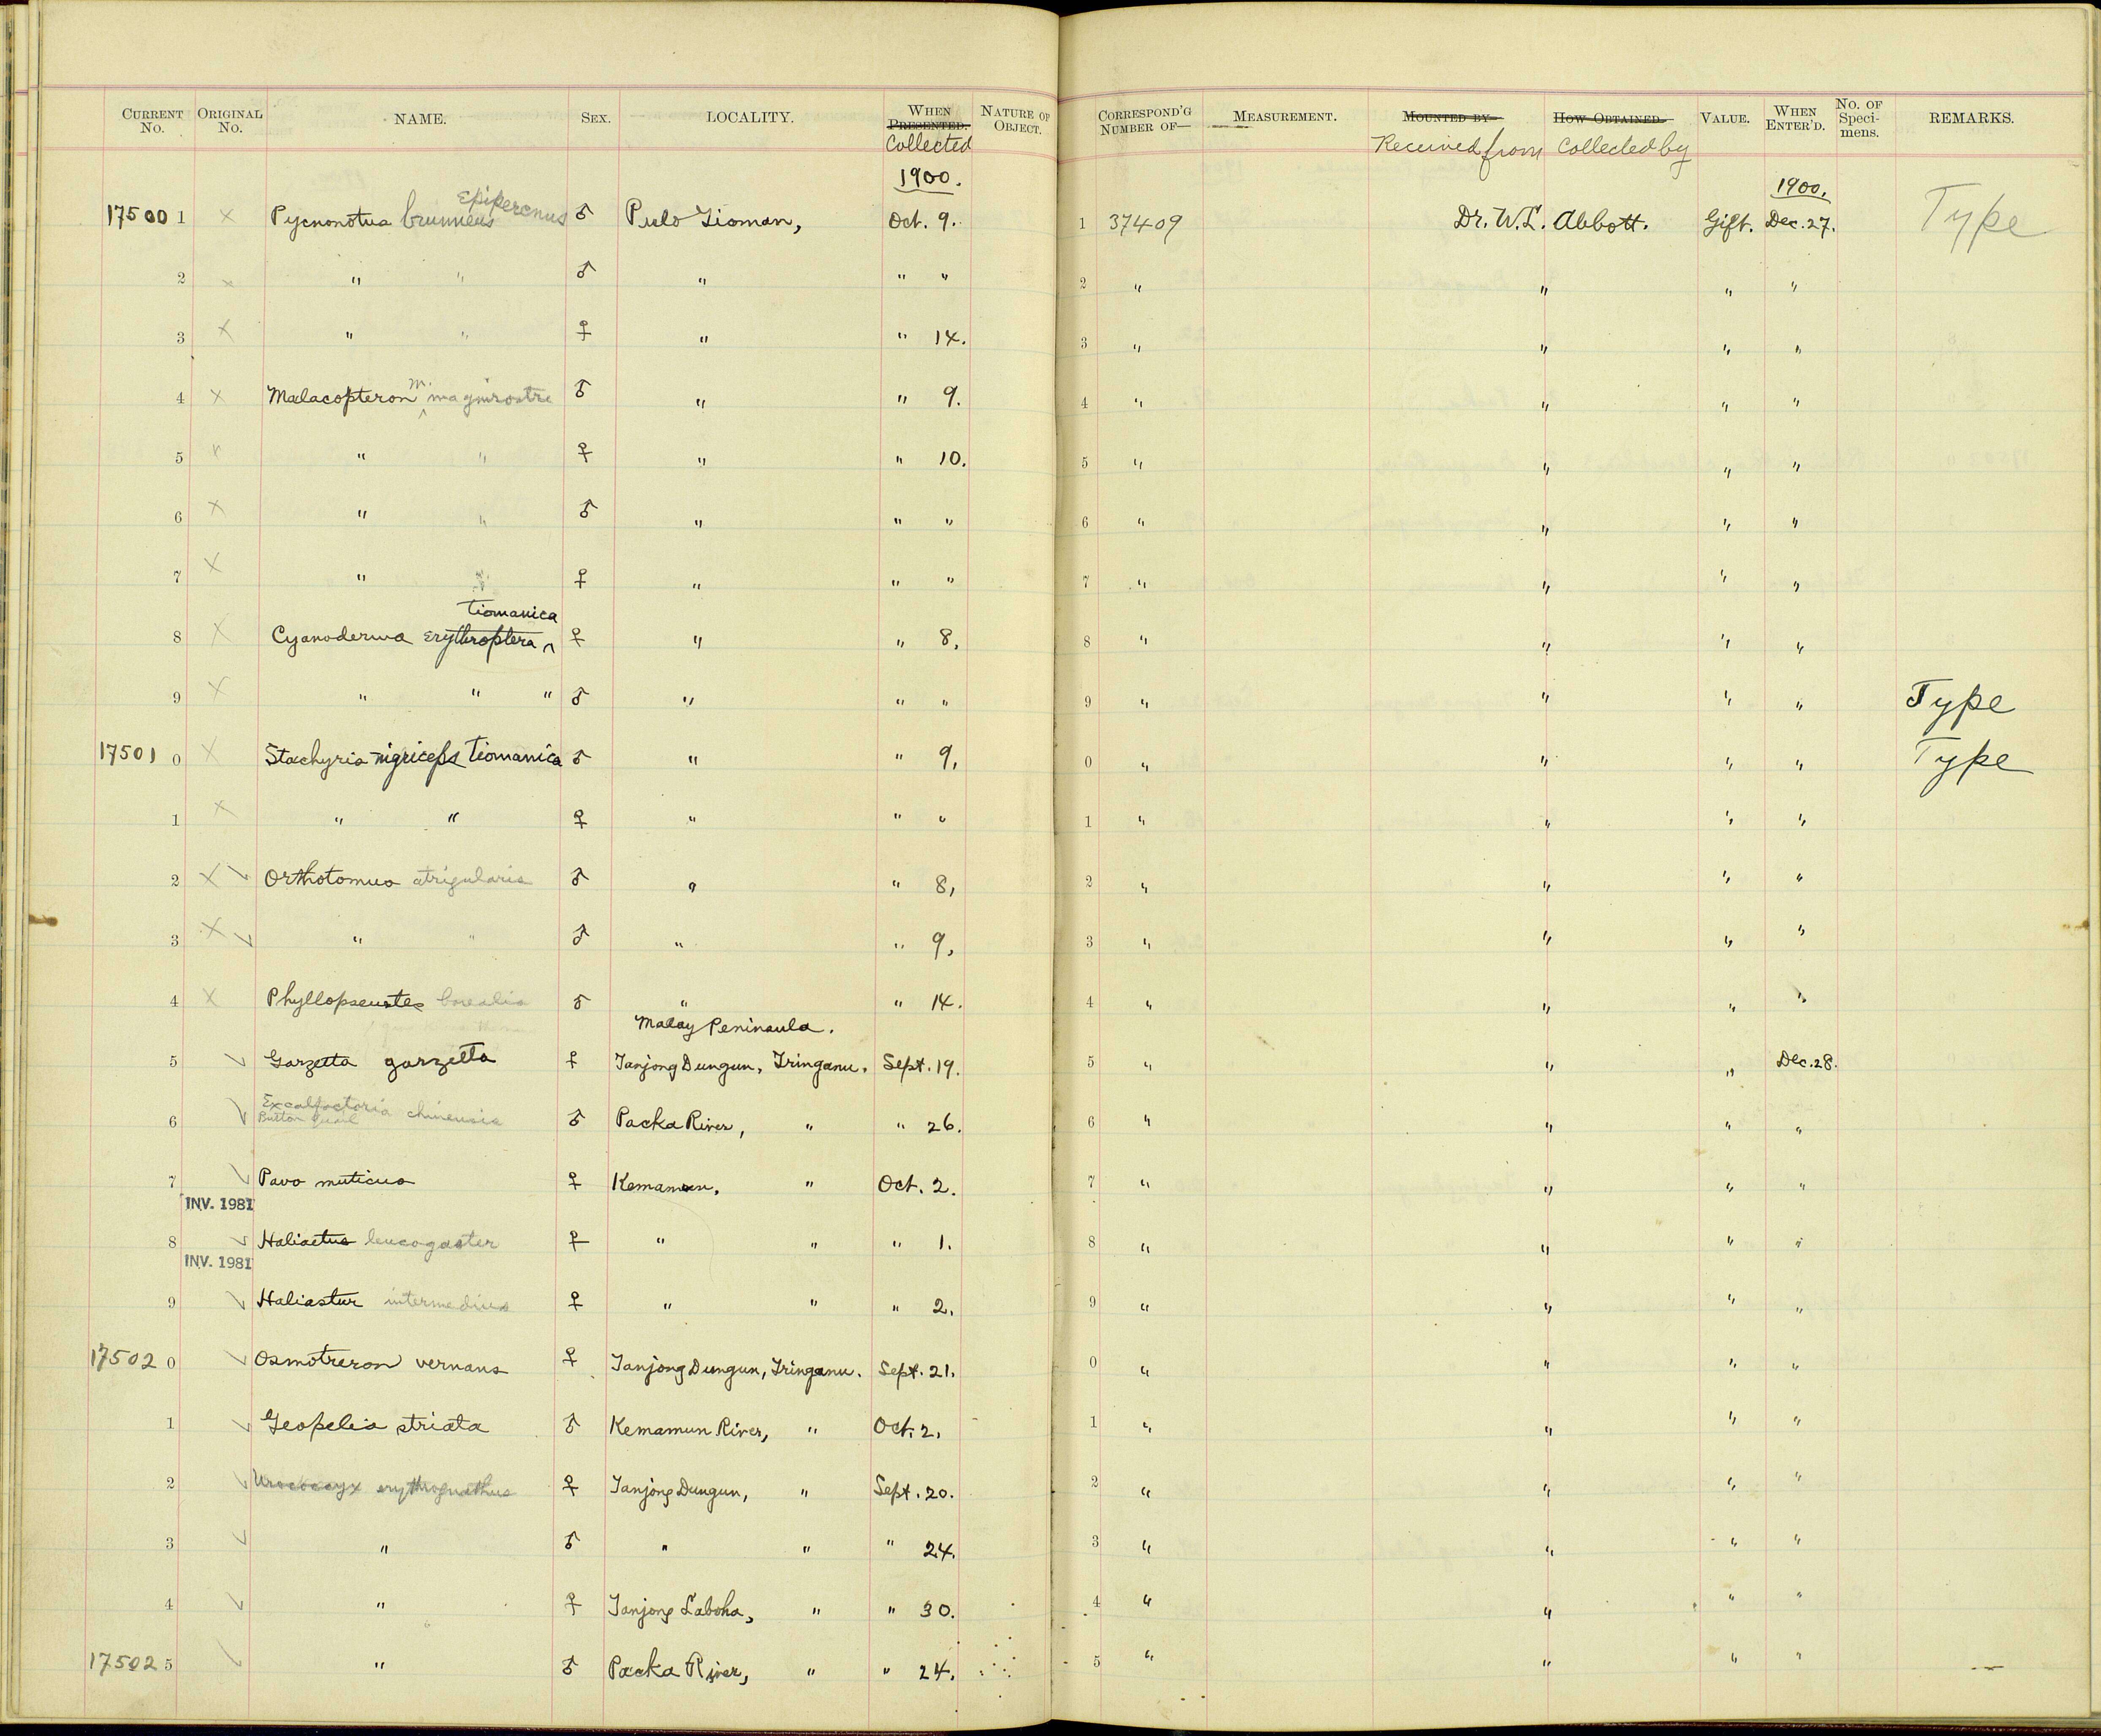 CURRENT No. ORIGINAL No. NAME. SEX. LOCALITY. WHEN PRESENTED. Collected NATURE OF OBJECT. CORRESPOND'G NUMBER OF— MEASUREMENT. MOUNTED BY Received from HOW OBTAINED Collected by VALUE. WHEN ENTER'D. No. OF Speci-mens. REMARKS.
1900. 1900.
17500 1 x Pycnonotus brunneus Epipercnus ♂ Pulo Tioman, Oct. 9. 1 37409 Dr. W. L. Abbott. Gift. Dec. 27. Type
2 x " " ♂ " " " 2 " " " "
3 x " " ♀ " " 14. 3 " " " "
4 x Malacopteron m. magnirostre ♂ " " 9. 4 " " " "
5 x " " ♀ " " 10. 5 " " " "
6 x " " ♂ " " " 6 " " " "
7 x " " ♀ " " " 7 " " " "
8 x Cyanoderma erythroptera tiomanica ♀ " " 8, 8 " " " "
9 x " " " ♂ " " " 9 " " " " Type
17501 0 x Stachyris nigriceps tiomanica ♂ " " 9, 0 " " " " Type
1 x " " ♀ " " " 1 " " " "
2 x ✓ Orthotomus atrigularis ♂ " " 8, 2 " " " "
3 x ✓ " " ♂ " " 9, 3 " " " "
4 x Phyllopseustes borealis ♂ " " 14. 4 " " " "
Malay Peninsula.
5 ✓ Garzetta garzetta ♀ Tanjong Dungun, Tringanu. Sept. 19. 5 " " " Dec. 28.
6 ✓ Excalfactoria chinensis Button Quail ♂ Packa River, " " 26. 6 " " " "
7 ✓ Pavo muticus ♀ Kemaman, " Oct. 2. 7 " " " "
INV. 1981
8 ✓ Haliaetus leucogaster ♀ " " " 1. 8 " " " "
INV. 1981
9 ✓ Haliastur intermedius ♀ " " " 2. 9 " " " "
17502 0 ✓ Osmotreron vernans ♀ Tanjong Dungun, Tringanu. Sept. 21. 0 " " " "
1 ✓ Geopelia striata ♂ Kemamun River, " Oct. 2, 1 " " " "
2 ✓ Urococcyx erythrognathus ♀ Tanjong Dungun, " Sept. 20. 2 " " " "
3 ✓ " ♂ " " " 24. 3 " " " "
4 ✓ " ♀ Tanjong Laboha, " " 30. 4 " " " "
17502 5 ✓ " ♂ Packa River, " " 24. 5 " " " "